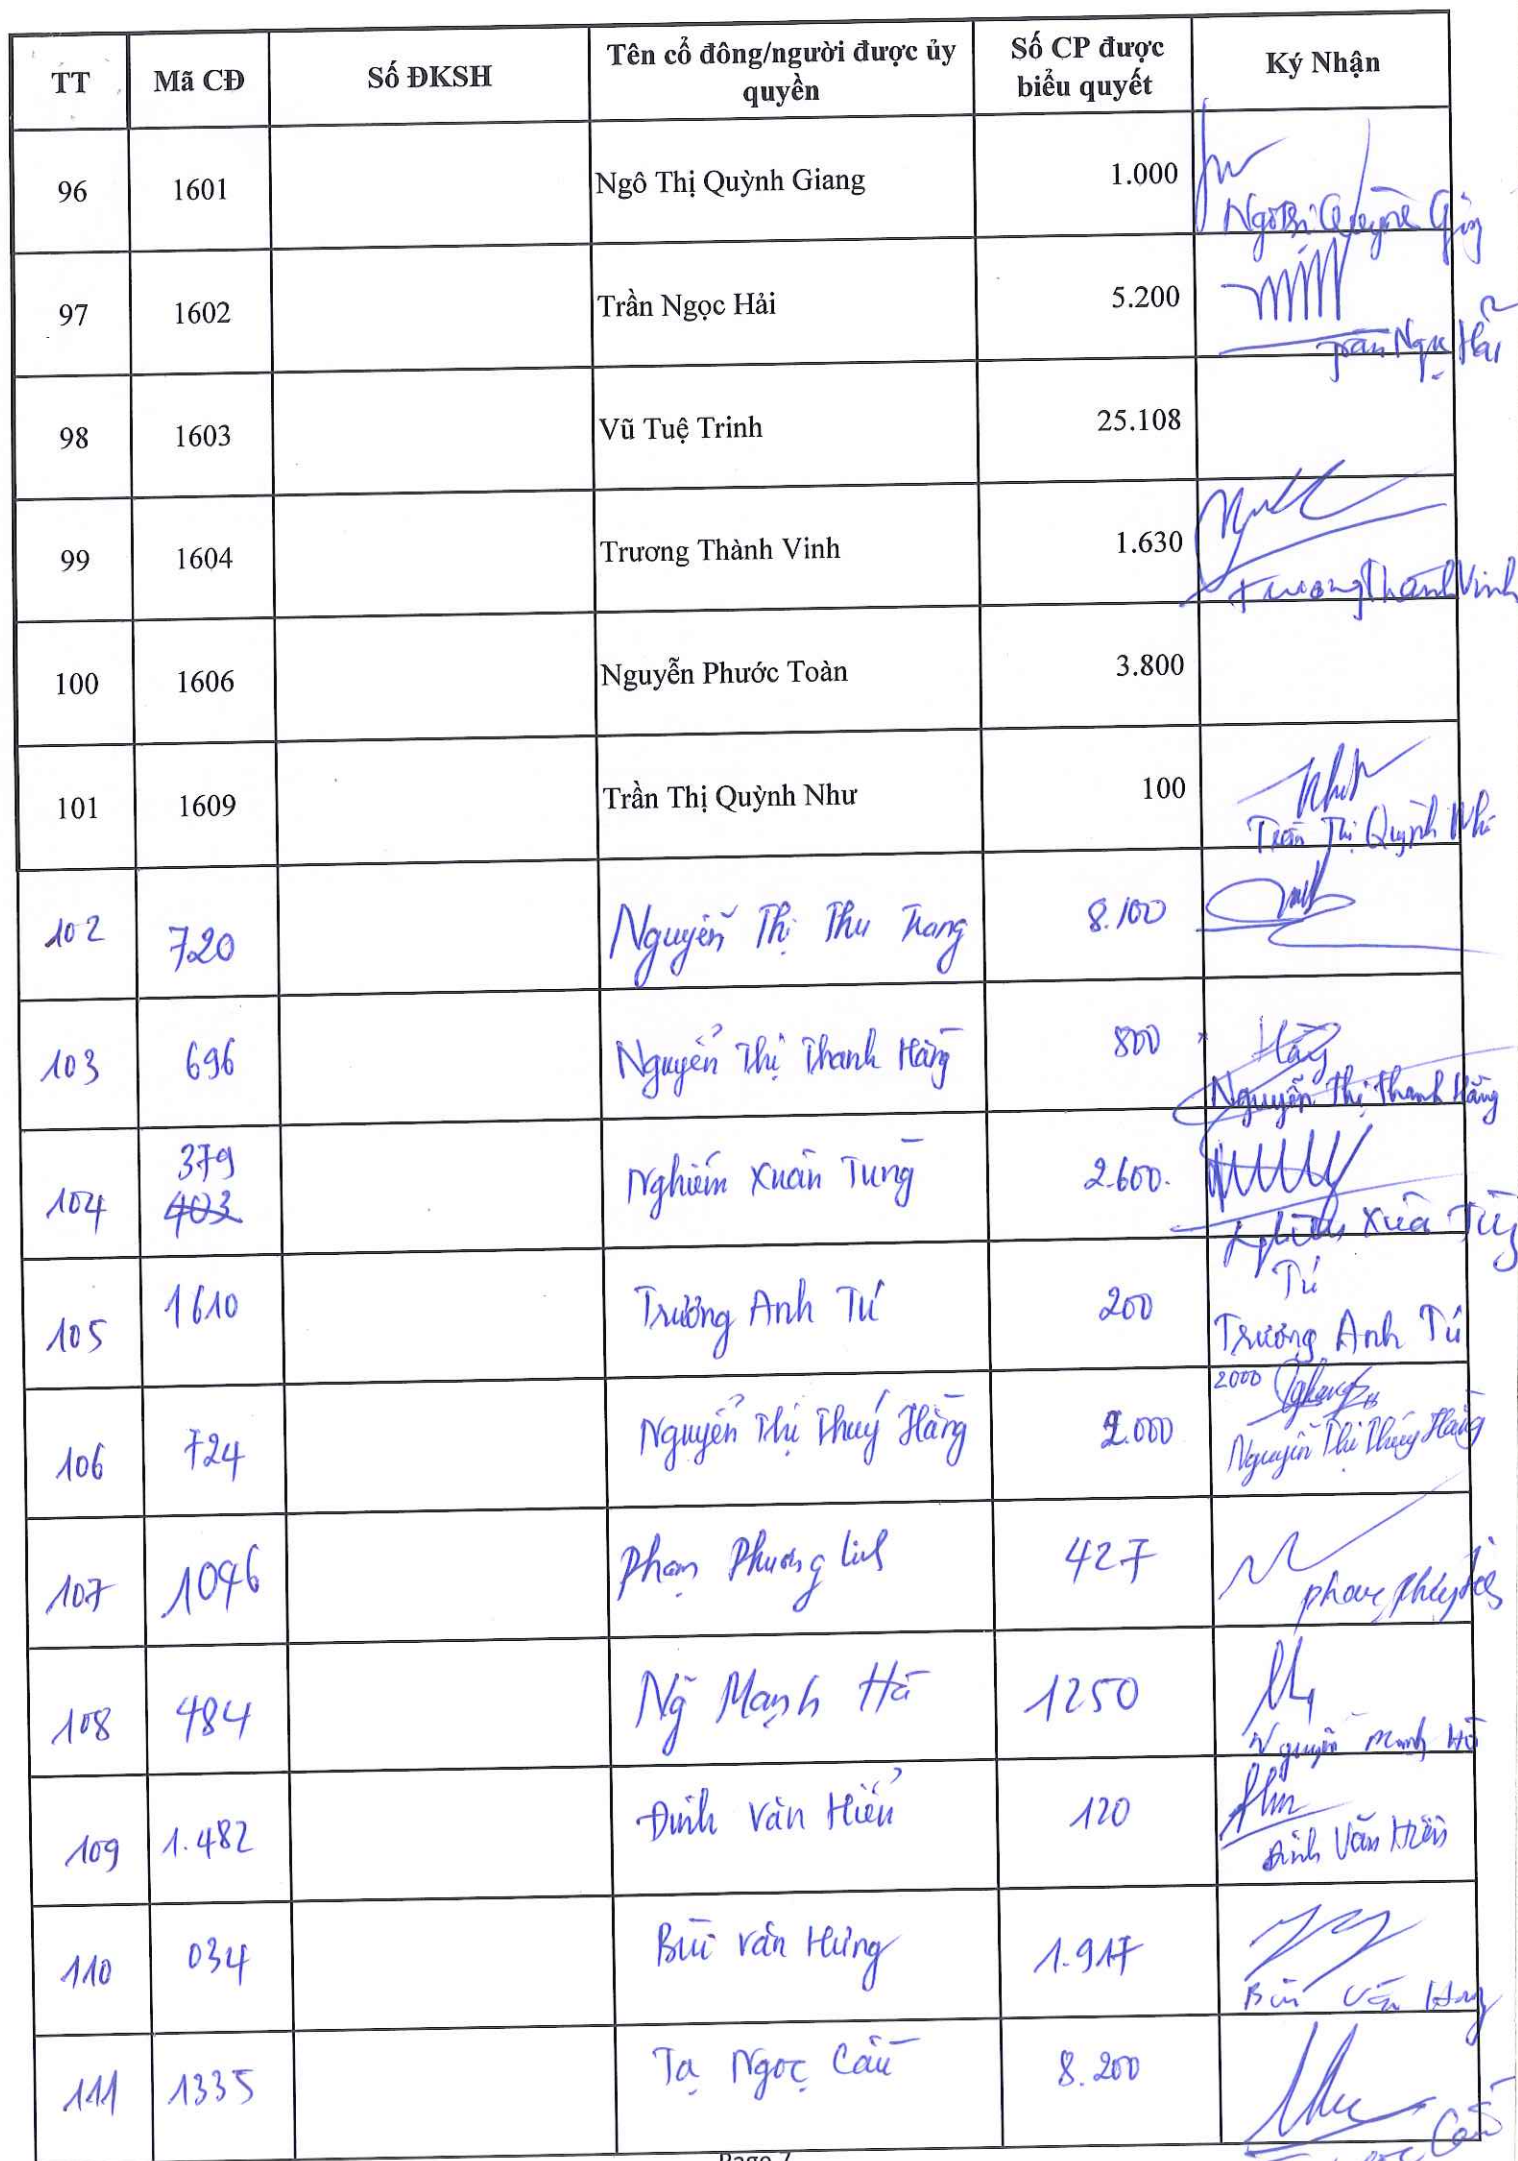 TT Mã CĐ Số ĐKSH Tên cổ đông/người được ủy quyền Số CP được biểu quyết Ký Nhận
96 1601 Ngô Thị Quỳnh Giang 1.000 Ngô Thị Quỳnh Giang
97 1602 Trần Ngọc Hải 5.200 Trần Ngọc Hải
98 1603 Vũ Tuệ Trinh 25.108
99 1604 Trương Thành Vinh 1.630 Trương Thành Vinh
100 1606 Nguyễn Phước Toàn 3.800
101 1609 Trần Thị Quỳnh Như 100 Như Trần Thị Quỳnh Như
102 720 Nguyễn Thị Thu Trang 8.100
103 696 Nguyễn Thị Thanh Hằng 800 Hằng Nguyễn Thị Thanh Hằng
104 379 403 Nghiêm Xuân Tùng 2.600. Nghiêm Xuân Tùng
105 1610 Trương Anh Tú 200 Tú Trương Anh Tú
106 724 Nguyễn Thị Thuý Hằng 2.000 2000 Nguyễn Thị Thúy Hằng
107 1096 Phạm Phương Linh 427
108 484 Ng̃ Mạnh Hà 1250 Nguyễn Mạnh Hà
109 1.482 Đinh Văn Hiển 120 Đinh Văn Hiển
110 034 Bùi Văn Hưng 1.917 Bùi Văn Hưng
111 1335 Tạ Ngọc Cầu 8.200
Page 7